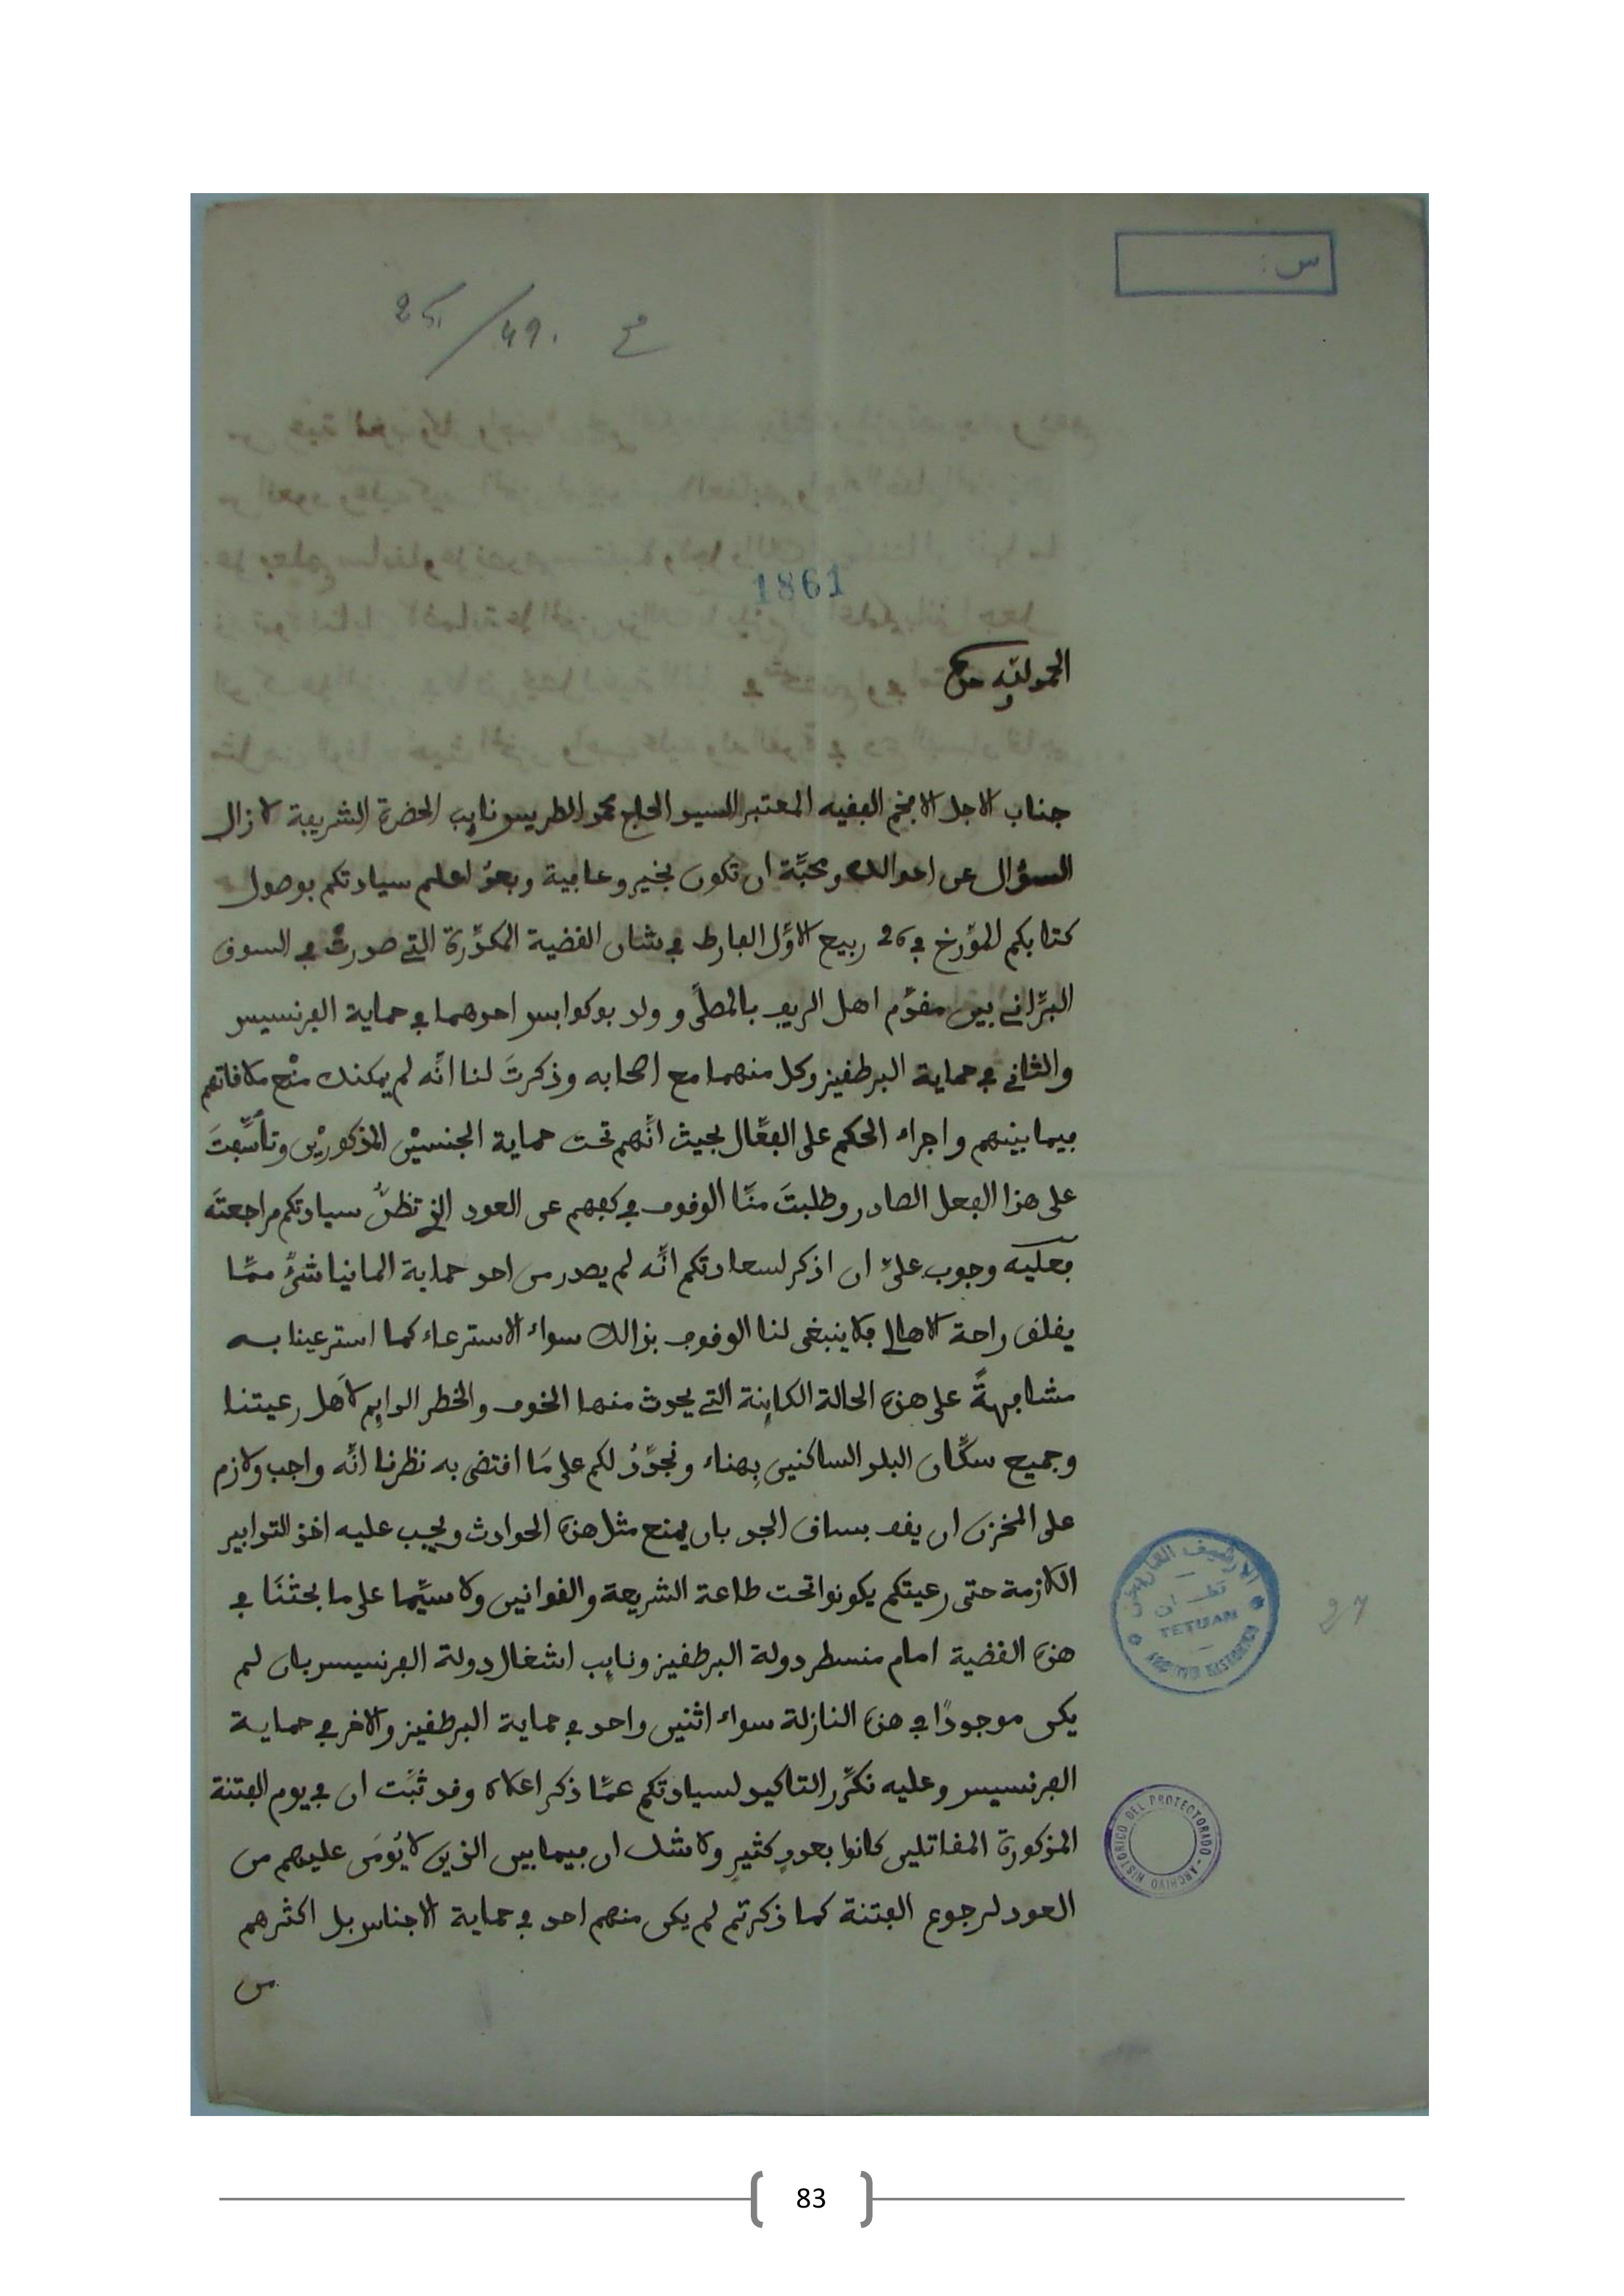 س :
مح 49/25
1861
الحمد لله وحده
جناب الاجل الافخم الفقيه المعتبر السيد الحاج محمد الطريس نايب الحضرة الشريفة لا زال
السؤال عن احوالك ومحبّة ان تكون بخير وعافية وبعدُ اعلم سيادتكم بوصول
كتابكم المؤرخ في 26 ربيع الاوّل الفارط في شان القضية المكدّرة التي صدرتْ في السوق
البرّاني بين مقدّم اهل الريف بالمصلّى وولد بوكوابس احدهما في حماية الفرنسيس
والثاني في حماية البرطقيز وكل منهما مع اصحابه وذكرتَ لنا انّه لم يمكنك منْع ملاقاتهم
فيما بينهم واجراء الحكم على الفعّال بحيث انّهم تحت حماية الجنسيْن المذكوريْن وتأسّفتَ
على هذا الفعل الصادر وطلبتَ منّا الوقوف في كفهم عن العود الذي تظنُّ سيادتكم مراجعتَه
فعليه وجوب عليّ ان اذكر لسعادتكم انّه لم يصدر من احد حماية المانيا شئٌ ممّا
يقلق راحة الاهالي فلا ينبغي لنا الوقوف بذالك سواء الاسترعاء كما استرعينا به
مشافهةً على هذه الحالة الكاينة التي يحدث منها الخوف والخطر الدايم لاَهل رعيتنا
وجميع سكّان البلد الساكنين بِهناء ونجدِّدُ لكم على مَا اقتضى به نظرنا انّه واجب ولازم
على المخزن ان يقف بساق الجد بان يمنع مثل هذه الحوادث ويجب عليه اخذ التدابير
اللازمة حتى رعيتكم يكونوا تحت طاعة الشريعة والقوانين ولا سيّما على ما بحثنَا في
هذه القضية امام منسطر دولة البرطقيز ونايب اشغال دولة الفرنسيس بان لم
يكن موجودًا في هذه النازلة سواء اثنين واحد في حماية البرطقيز والاخر في حماية
الفرنسيس وعليه نكرّر التاكيد لسيادتكم عمّا ذكر اعلاه وقد ثبَت ان في يوم الفتنة
المذكورة المقاتلين كانوا بعددٍ كثيرٍ ولا شك ان فيما بين الذين لا يُومَن عليهم من
العود لرجوع الفتنة كما ذكرتم لم يكن منهم احد في حماية الاجناس بل اكثرهم
من
الارشيف التاريخي
تطوان
TETUAN
27
ARCHIVO HISTORICO DEL PROTECTORADO
83